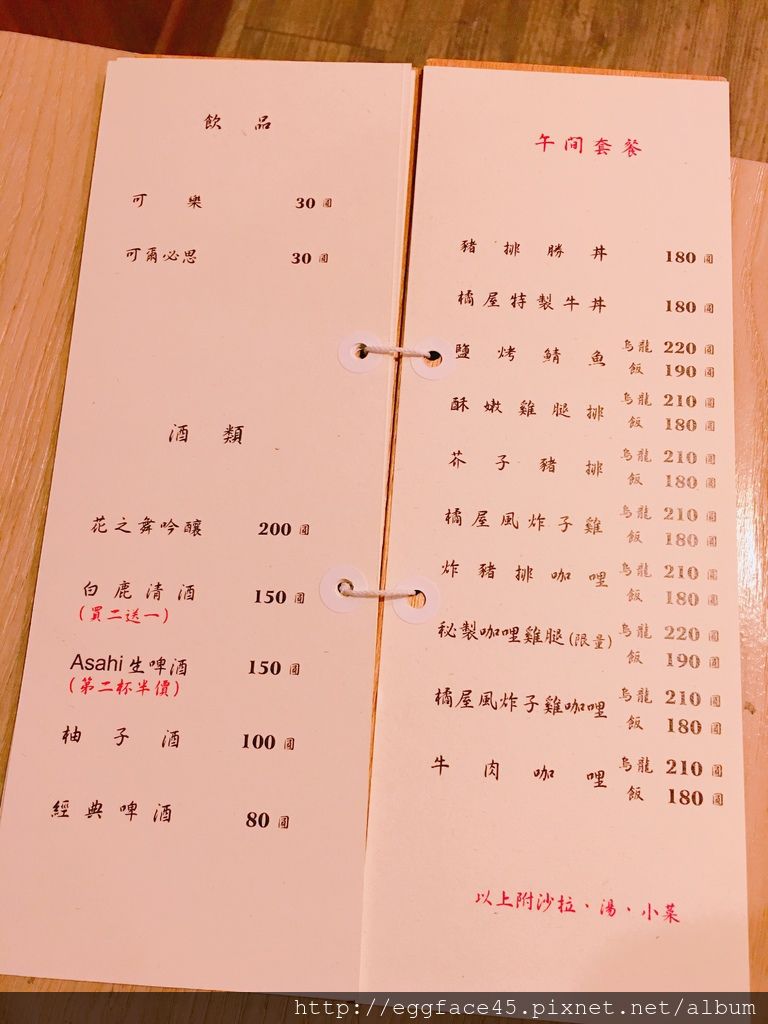 飲品
可樂 30 圓
可爾必思 30 圓
酒類
花之舞吟釀 200 圓
白鹿清酒 150 圓
(買二送一)
Asahi生啤酒 150 圓
(第二杯半價)
柚子酒 100 圓
經典啤酒 80 圓
午間套餐
豬排勝丼 180 圓
橘屋特製牛丼 180 圓
鹽烤鯖魚 烏龍 220 圓
飯 190 圓
酥嫩雞腿排 烏龍 210 圓
飯 180 圓
芥子豬排 烏龍 210 圓
飯 180 圓
橘屋風炸子雞 烏龍 210 圓
飯 180 圓
炸豬排咖哩 烏龍 210 圓
飯 180 圓
秘製咖哩雞腿(限量) 烏龍 220 圓
飯 190 圓
橘屋風炸子雞咖哩 烏龍 210 圓
飯 180 圓
牛肉咖哩 烏龍 210 圓
飯 180 圓
以上附沙拉、湯、小菜
http://eggface45.pixnet.net/album